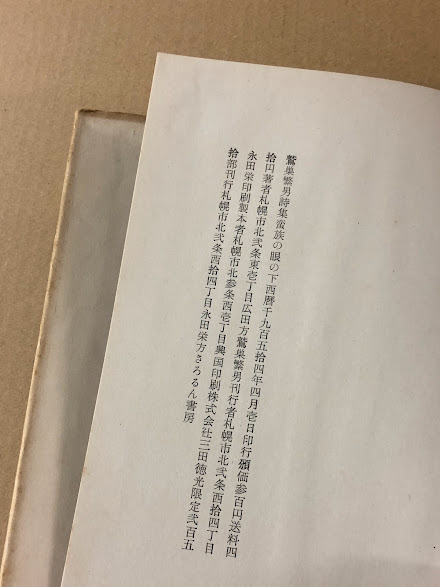 鷲巣繁男詩集蛮族の眼の下西暦千九百五拾四年四月壱日印行頒価参百円送料四
拾円著者札幌市北弐条東壱丁目広田方鷲巣繁男刊行者札幌市北弐条西拾四丁目
永田栄印刷製本者札幌市北参条西壱丁目興国印刷株式会社三田徳光限定弐百五
拾部刊行札幌市北弐条西拾四丁目永田栄方さろるん書房